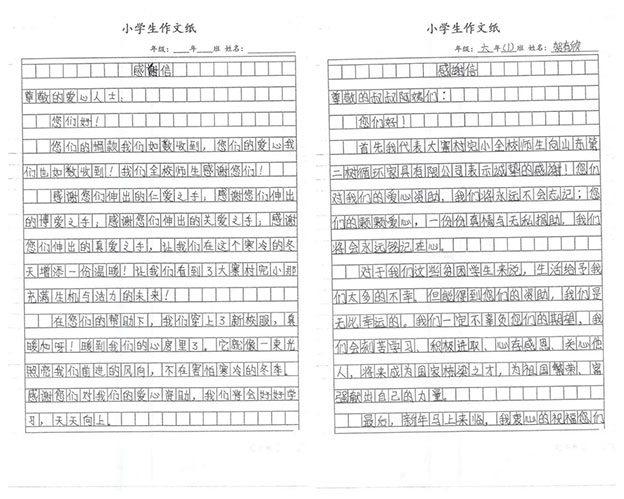 小学生作文纸
年级:___年___班 姓名:________
感谢信
尊敬的爱心人士:
您们好!
您们的捐款我们如数收到,您们的爱心我
们也如数收到!我们全校师生感谢您们!
感谢您们伸出的仁爱之手;感谢您们伸出
的博爱之手;感谢您们伸出的关爱之手;感谢
您们伸出的真爱之手,让我们在这个寒冷的冬
天增添一份温暖!让我们看到了大寨村完小那
充满生机与活力的未来!
在您们的帮助下,我们穿上了新校服,真
暖和呀!暖到我们的心房里了。它就像一束光
照亮我们前进的风向,不在害怕寒冷的冬季。
感谢您们对我们的爱心资助,我们将会好好学
习,天天向上。
小学生作文纸
年级:六年(1)班 姓名:
感谢信
尊敬的叔叔阿姨们:
您们好!
首先我代表大寨村完小全校师生向山东第
二树循环家具有限公司表示诚挚的感谢!您们
对我们的爱心资助,我们将永远不会忘记;您
们的颗颗爱心,一份份真情与无私捐助,我们
将会永远铭记在心。
对于我们这些贫困学生来说,生活给予我
们太多的不幸、但能得到您们的资助,我们是
无比幸运的。我们一定不辜负您们的期望,我
们会刻苦学习、积极进取、心存感恩、关心他
人,将来成为国家栋梁之才,为祖国繁荣、富
强献出自己的力量。
最后,新年马上来临,我衷心的祝福您们